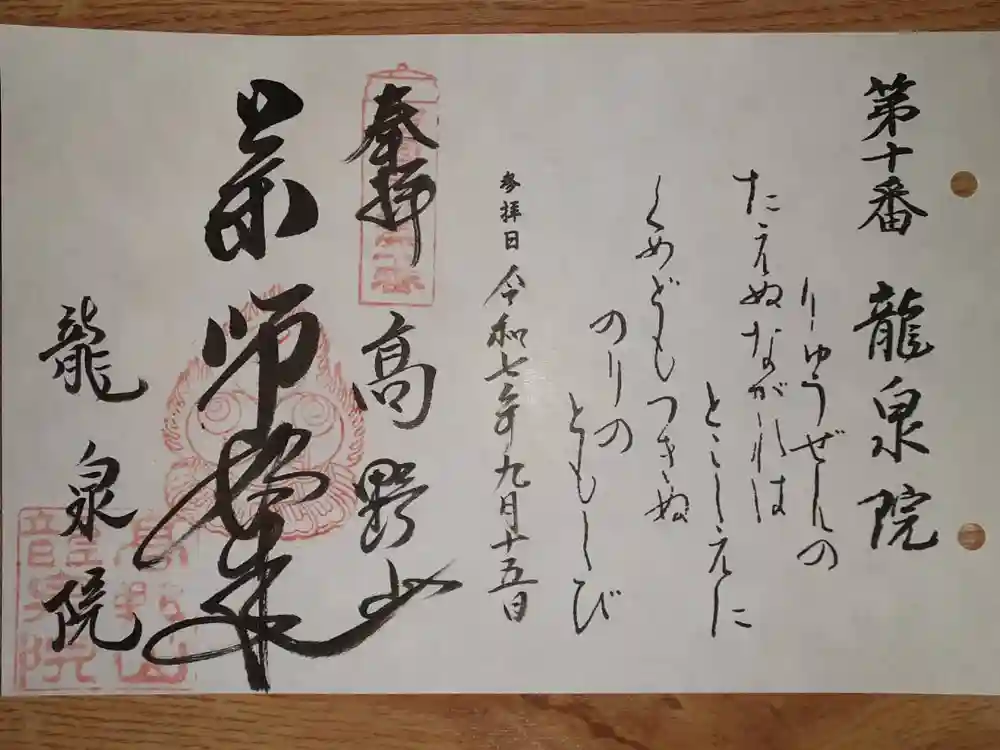 第十番 龍泉院
りゆうぜんの
たえぬながれは
とこしえに
くめどもつきぬ
のりの
ともしび
参拝日 令和七年九月十五日
奉拝
高野山
薬師如来
龍泉院
高野山
龍泉院